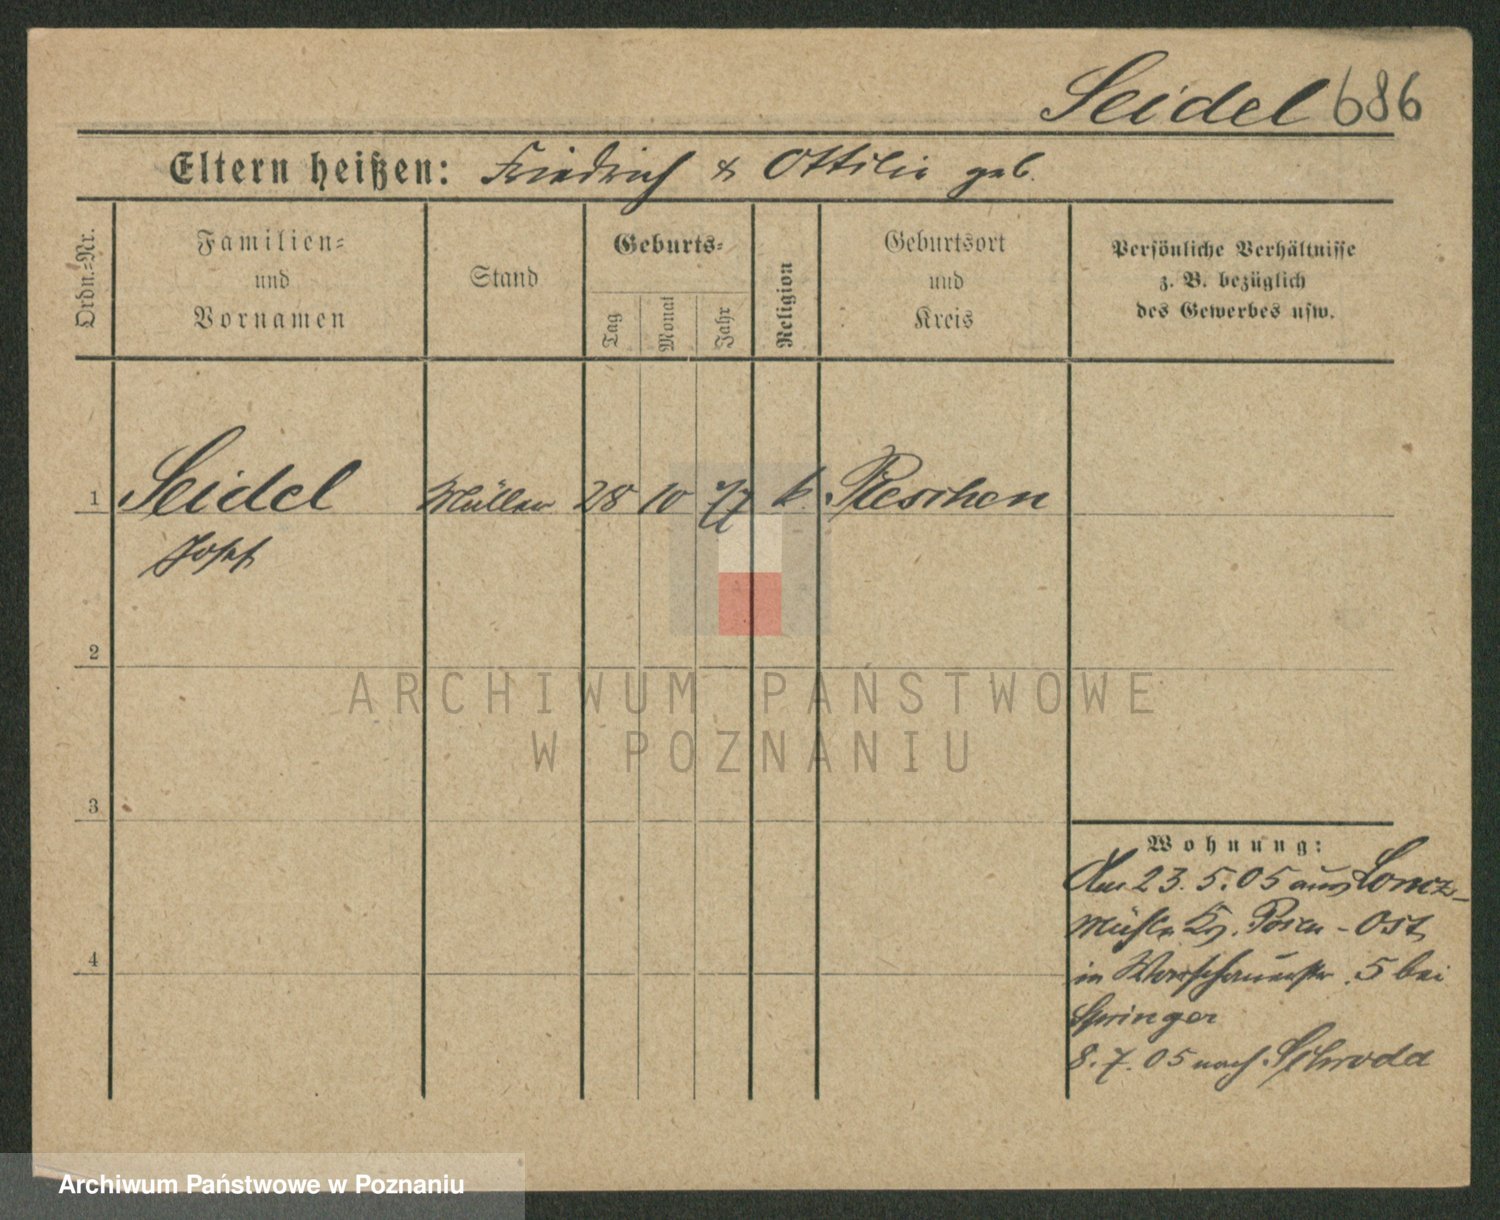 Seidel 686
Eltern heißen: Friedrich & Ottilie geb.
Ordn.=Nr.
Familien= und Vornamen
Stand
Geburts=
Tag
Monat
Jahr
Religion
Geburtsort und Kreis
Persönliche Verhältnisse
z. B. bezüglich
des Gewerbes usw.
1 Seidel Müller 28 10 77 k. Pleschen
Josef
2
3
4
Wohnung:
Am 23.5.05 aus Loncz-
mühle Kr. Posen-Ost
in Warschauerstr. 5 bei
Springer
8.7.05 nach Schroda
ARCHIWUM PAŃSTWOWE
W POZNANIU
Archiwum Państwowe w Poznaniu